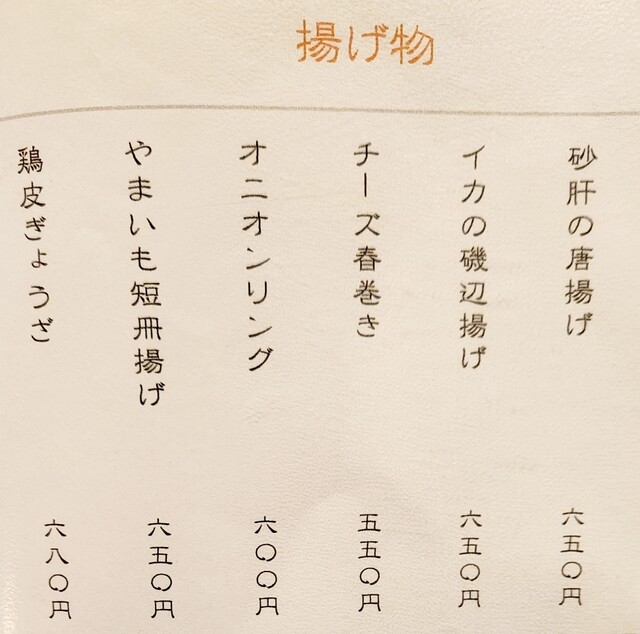 揚げ物
砂肝の唐揚げ 六五〇円
イカの磯辺揚げ 六五〇円
チーズ春巻き 五五〇円
オニオンリング 六〇〇円
やまいも短冊揚げ 六五〇円
鶏皮ぎょうざ 六八〇円